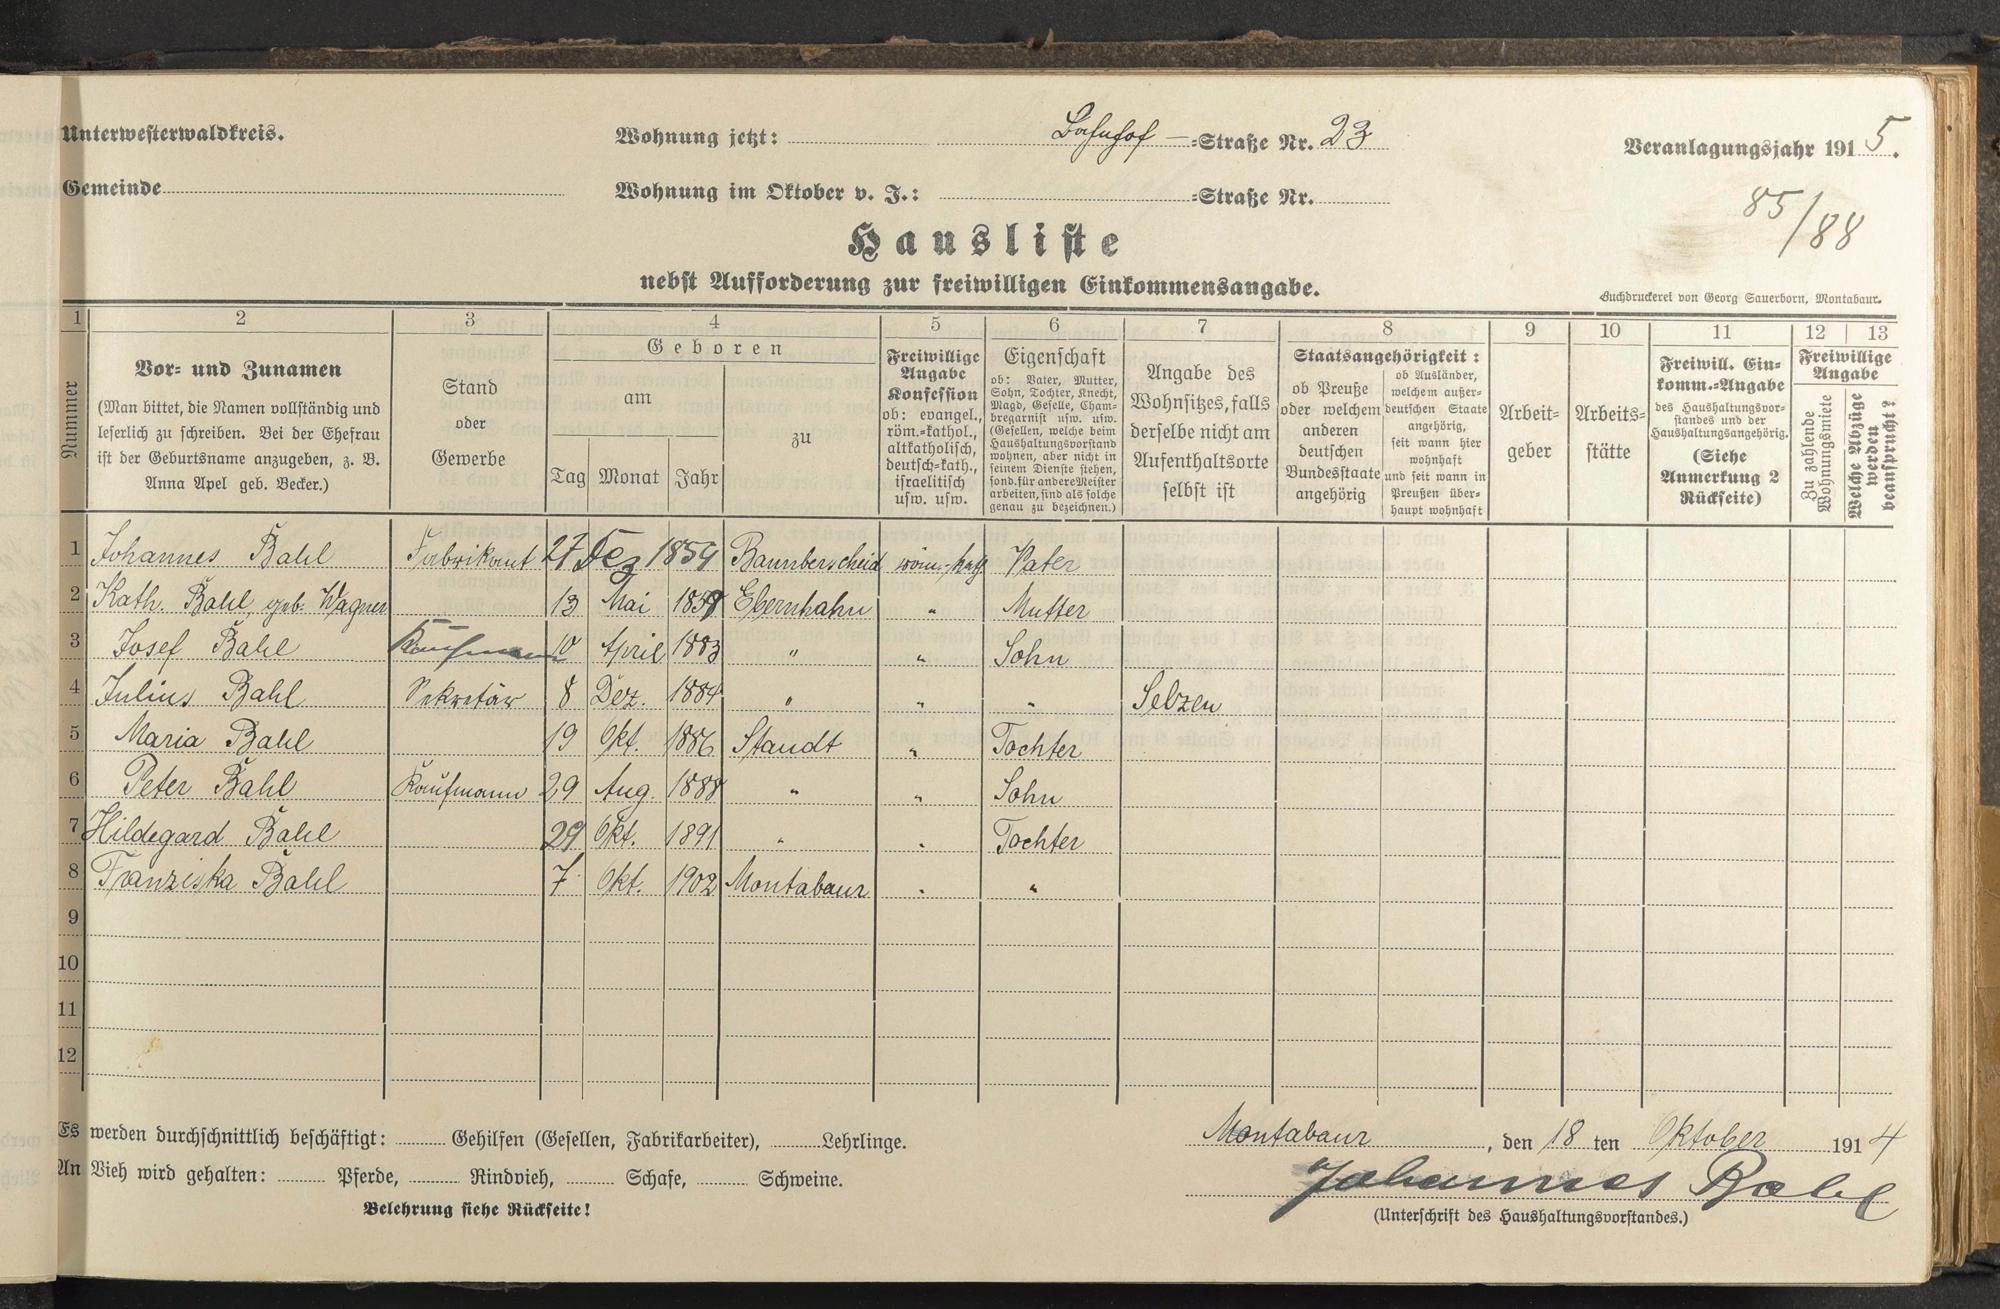 Unterwesterwaldkreis.
Wohnung jetzt: Bahnhof-Straße Nr. 23
Veranlagungsjahr 1915.
Gemeinde
Wohnung im Oktober v. J.: -Straße Nr.
85/88
Hausliste
nebst Aufforderung zur freiwilligen Einkommensangabe.
Buchdruckerei von Georg Sauerborn, Montabaur.
1 2 3 4 5 6 7 8 9 10 11 12 13
Nummer
Vor- und Zunamen
(Man bittet, die Namen vollständig und
leserlich zu schreiben. Bei der Ehefrau
ist der Geburtsname anzugeben, z. B.
Anna Apel geb. Becker.)
Stand
oder
Gewerbe
Geboren
am
Tag Monat Jahr
zu
Freiwillige
Angabe
Konfession
ob: evangel.,
röm.-kathol.,
altkatholisch,
deutsch-kath.,
israelitisch
usw. usw.
Eigenschaft
ob: Vater, Mutter,
Sohn, Tochter, Knecht,
Magd, Geselle, Cham-
bregarnist usw. usw.
(Gesellen, welche beim
Haushaltungsvorstand
wohnen, aber nicht in
seinem Dienste stehen,
sond. für andere Meister
arbeiten, sind als solche
genau zu bezeichnen.)
Angabe des
Wohnsitzes, falls
derselbe nicht am
Aufenthaltsorte
selbst ist
Staatsangehörigkeit:
ob Preuße
oder welchem
anderen
deutschen
Bundesstaate
angehörig
ob Ausländer,
welchem außer-
deutschen Staate
angehörig,
seit wann hier
wohnhaft
und seit wann in
Preußen über-
haupt wohnhaft
Arbeit-
geber
Arbeits-
stätte
Freiwill. Ein-
komm.-Angabe
des Haushaltungsvor-
standes und der
Haushaltungsangehörig.
(Siehe
Anmerkung 2
Rückseite)
Freiwillige
Angabe
Zu zahlende
Wohnungsmiete
Welche Abzüge
werden
beansprucht?
1 Johannes Bahl Fabrikant 27 Dez 1859 Bannberscheid röm.-kath Vater
2 Kath. Bahl geb. Wagner 13 Mai 1858 Ebernhahn " Mutter
3 Josef Bahl Kaufmann 10 April 1883 " " Sohn
4 Julius Bahl Sekretär 8 Dez. 1884 " " " Selzen
5 Maria Bahl 19 Okt. 1886 Staudt " Tochter
6 Peter Bahl Kaufmann 29 Aug. 1888 " " Sohn
7 Hildegard Bahl 29 Okt. 1891 " " Tochter
8 Franziska Bahl 7 Okt. 1902 Montabaur " "
9
10
11
12
Es werden durchschnittlich beschäftigt: Gehilfen (Gesellen, Fabrikarbeiter), Lehrlinge.
An Vieh wird gehalten: Pferde, Rindvieh, Schafe, Schweine.
Belehrung siehe Rückseite!
Montabaur, den 18 ten Oktober 1914
Johannes Bahl
(Unterschrift des Haushaltungsvorstandes.)